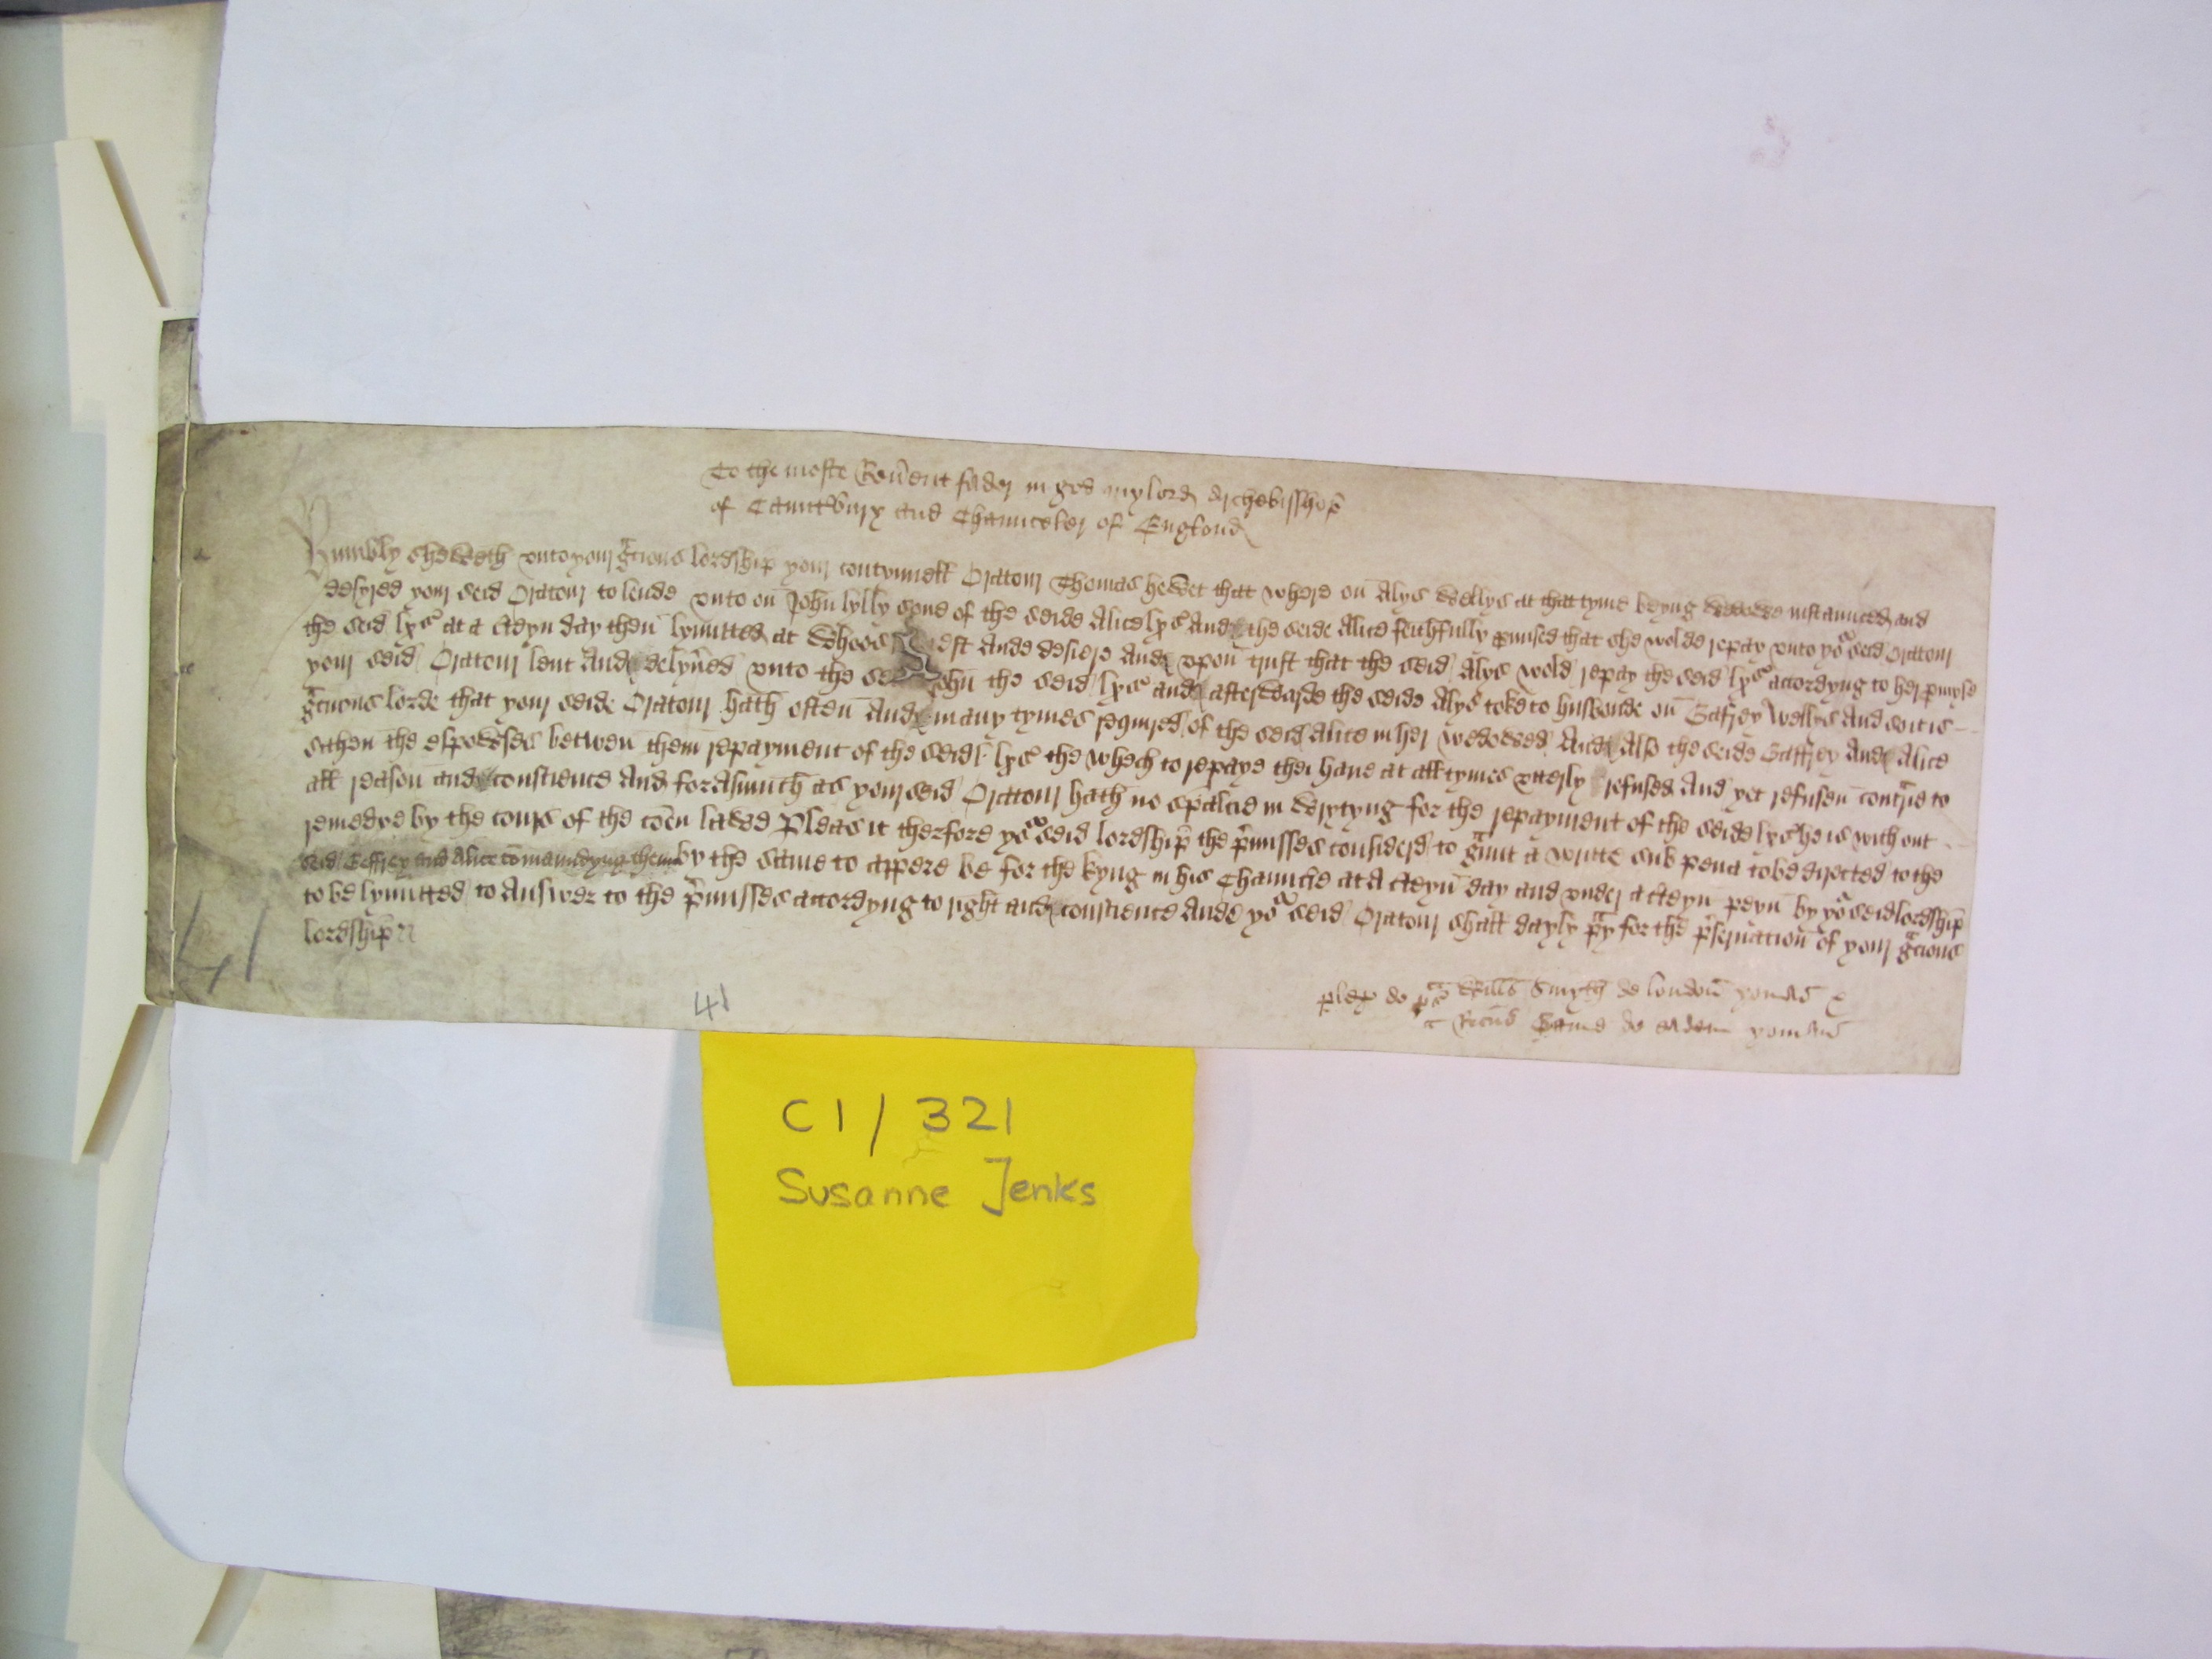 To the moste Reũent fader in god my lord Archebisshop̃
of Caunt̃bury and Chaunceler of Englond
Humbly sheweth vnto your g̃cious lordship your contynuell Oratour Thomas hewet that where on Alys Wellys at that tyme beyng wedowe instaunced and
desyred your seid Oratour to lende vnto on John lylly sone of the seide Alice lxs And the seide Alice feithfully p̃mised that she wolde repay vnto yor seid Oratour
the seid lxs at a c̃teyn day then lymitted at Whoos est Ande desiere And vpon trust that the seid Alys wold repay the seid lxs accordyng to her p̃myse
your seid Oratour lent And delyũed vnto the se ohn the seid lxs and afterwarde the seide Alys toke to husbonde on Gaffrey Wellys And so it is
g̃cious lorde that your seide Oratour hath often And many tymes required of the seid Alice in her wedowed And Also the seide Gaffrey And Alice
sithen the espowses betwen them repayment of the seide lxs the whech to repaye thei haue at all tymes vtterly refused And yet refusen cont̃rie to
all reason and conscience And for Asmuch as your seid Oratour hath no sp̃alte in wrytyng for the repayment of the seide lxs he is with out
remedye by the cours of the cõen lawe Pleas it therfore yor seid lordship̃ the p̃misses considerd to g̃unt a writte sub pena to be directed to the
seid Geffrey and Alice cõmaundyng them by the same to appere be for the kyng in his Chaunc̃ie at A c̃teyn day and vnder a c̃teyn peyn by yor seid lordship̃
to be lymitted to Answer to the p̃misses accordyng to right and conscience Ande yor seid Oratour shall dayly p̃y for the p̃seruacion of your g̃cious
lordship̃
pleg̃ de p̃ Will̃s Smyth de london yoman
Ric̃us de eadem yoman
41
41
C1 / 321
Susanne Jenks